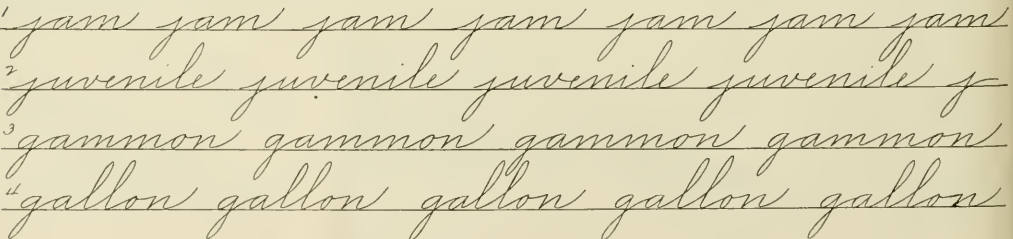 1 jam jam jam jam jam jam jam
2 juvenile juvenile juvenile juvenile j
3 gammon gammon gammon gammon
4 gallon gallon gallon gallon gallon